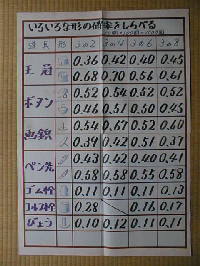 いろいろな形の確率をしらべる
道具 形 3の2 3の4 3の6 3の8
王冠 0.36 0.42 0.40 0.45
0.68 0.70 0.56 0.61
ボタン 0.52 0.54 0.52 0.52
0.46 0.51 0.50 0.45
画鋲 0.54 0.67 0.52 0.60
0.39 0.42 0.51 0.37
ペン先 0.43 0.42 0.40 0.41
0.58 0.58 0.55 0.58
ゴム栓 0.11 0.11 0.11 0.13
コルク栓 0.28 0.16 0.17
びょう 0.10 0.12 0.11 0.11